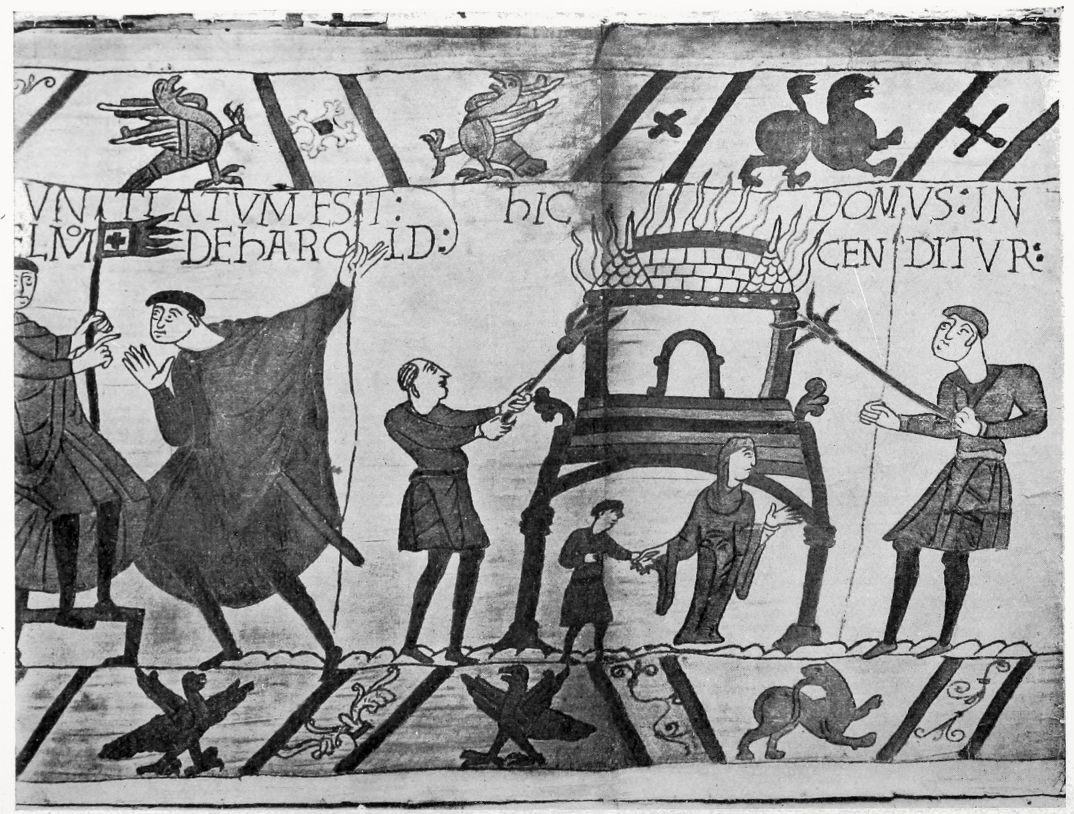 VNTIATVM EST:
ELMO DEhAROLD:
hIC DOMVS: IN
CENDITVR: